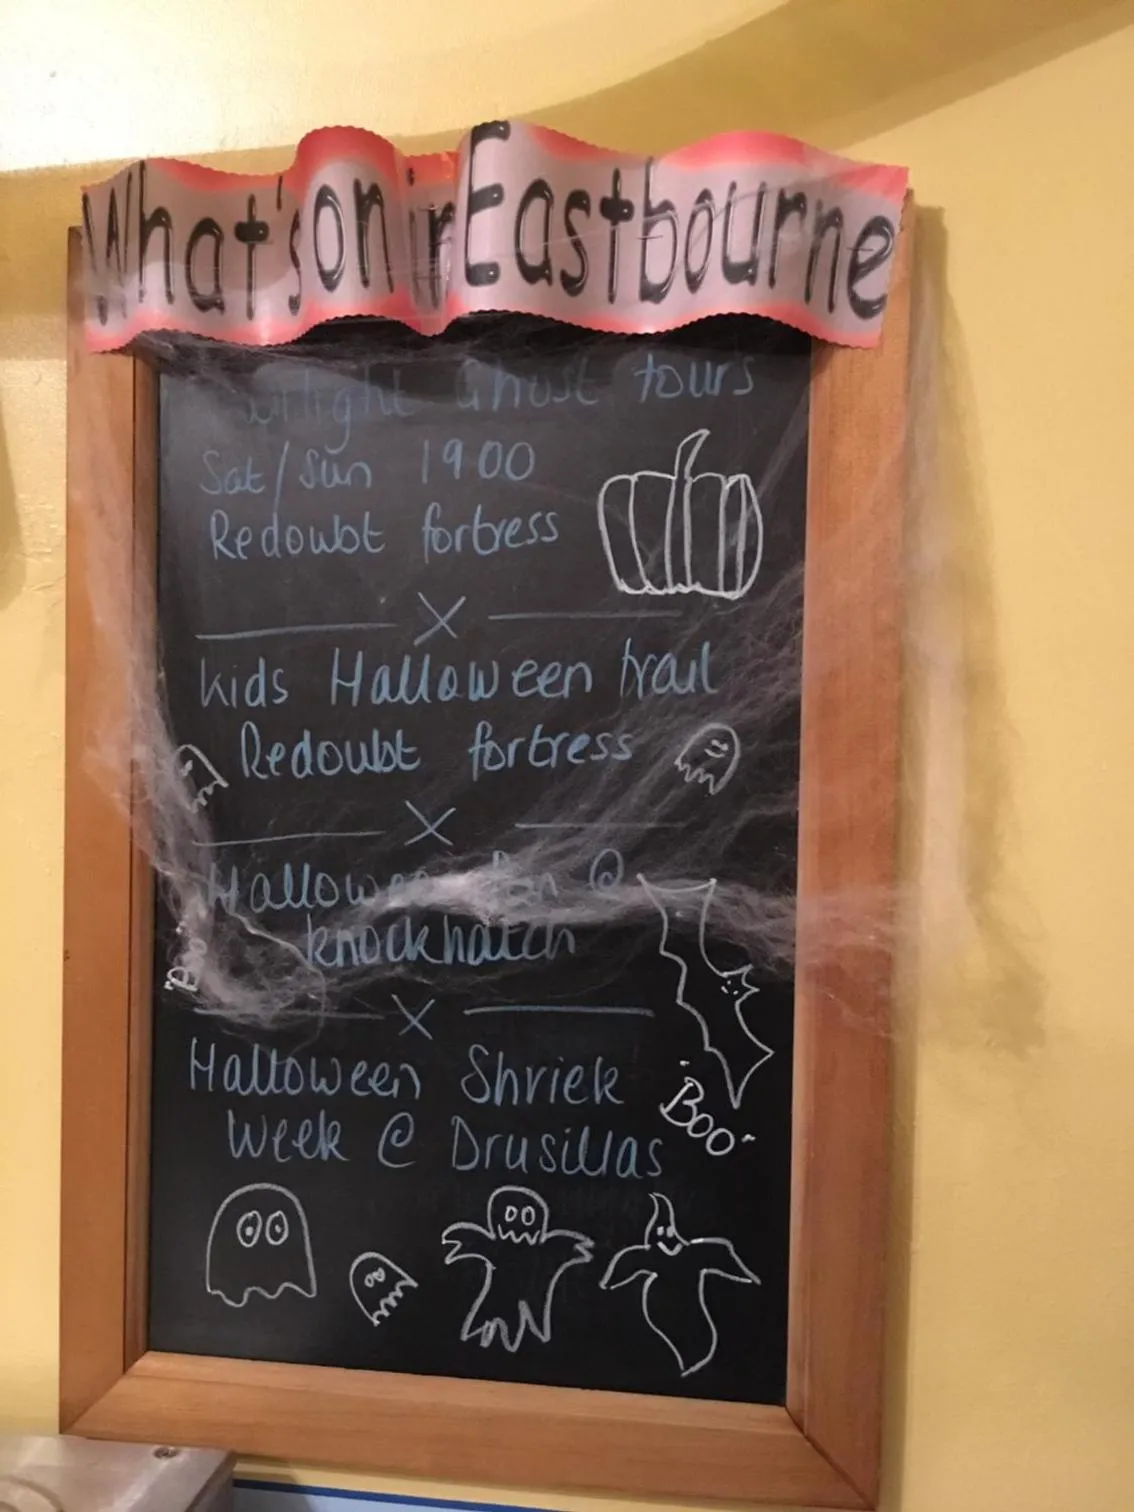 What's on in Eastbourne
Twilight Ghost tours
Sat/Sun 1900
Redoubt fortress
X
Kids Halloween trail
Redoubt fortress
X
Halloween fun @
knockhatch
X
Halloween Shriek
Week @ Drusillas
"Boo"